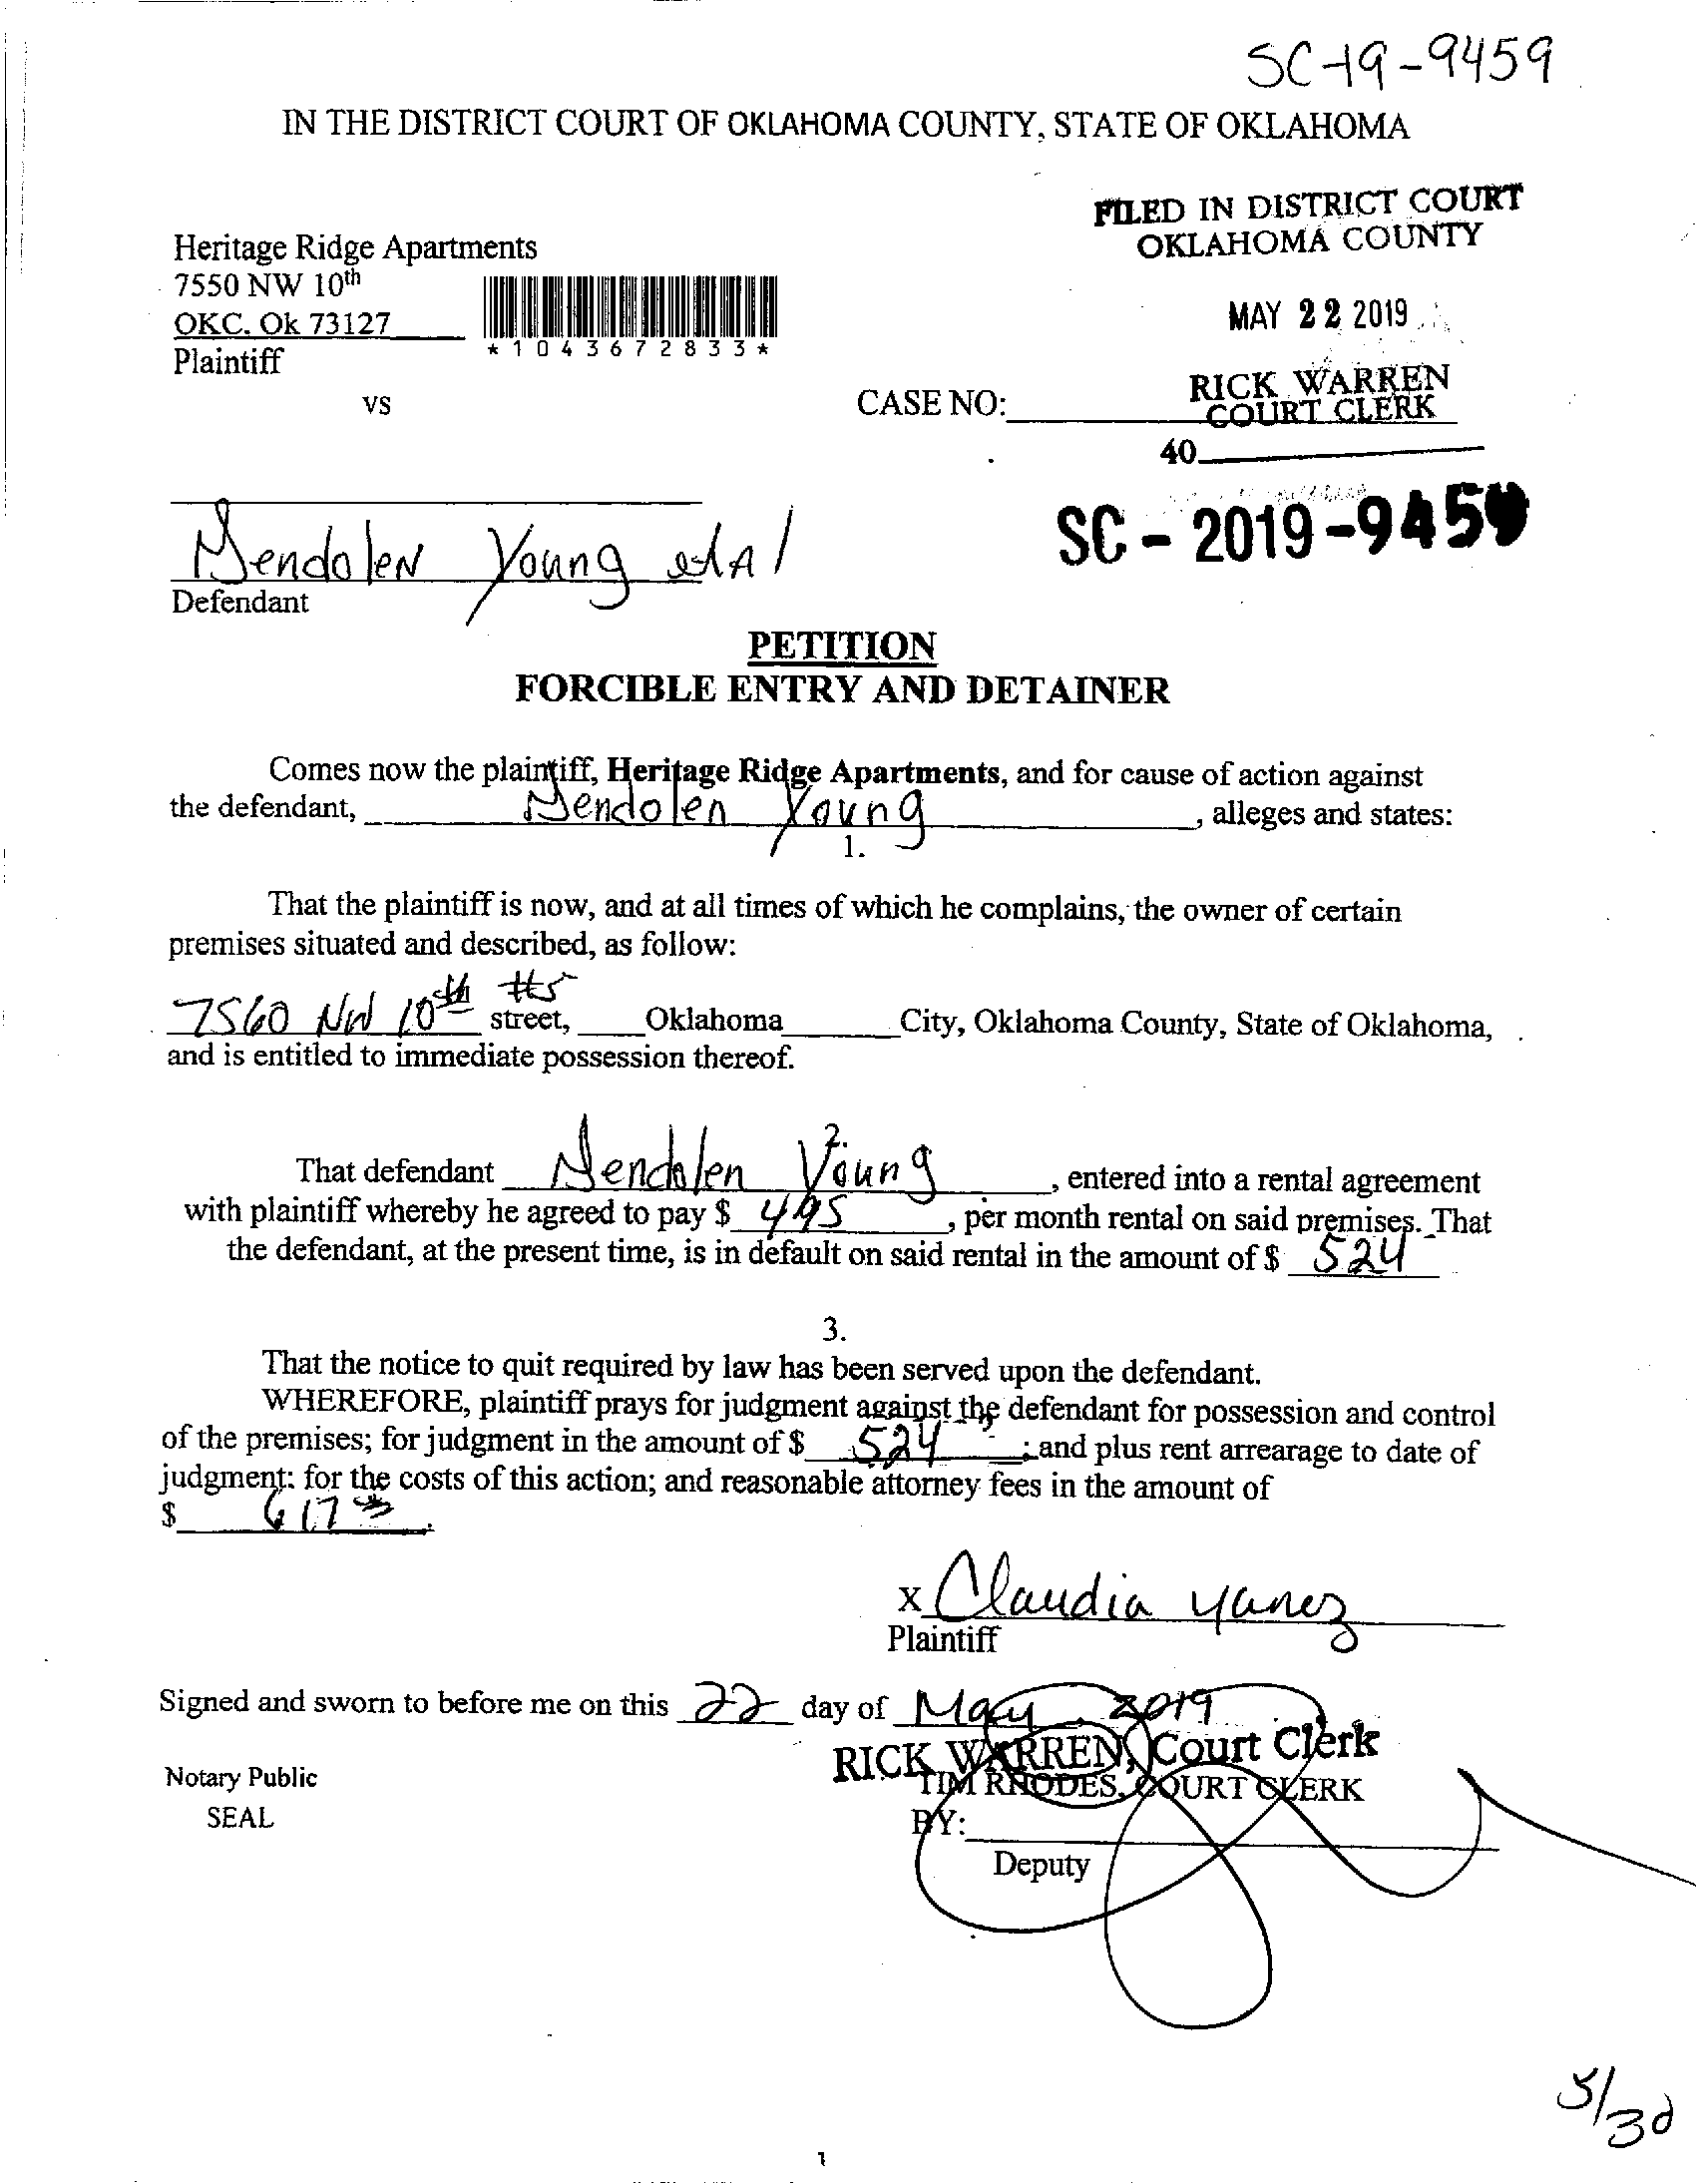 SC-19-9459
IN THE DISTRICT COURT OF OKLAHOMA COUNTY, STATE OF OKLAHOMA
FILED IN DISTRICT COURT
OKLAHOMA COUNTY
Heritage Ridge Apartments
7550 NW 10th
OKC. Ok 73127
*1043672833*
MAY 22 2019
Plaintiff
RICK WARREN
COURT CLERK
vs
CASE NO:
40
SC - 2019 - 9459
Young et Al
Defendant
PETITION
FORCIBLE ENTRY AND DETAINER
Comes now the plaintiff, Heritage Ridge Apartments, and for cause of action against
the defendant, Young, alleges and states:
1.
That the plaintiff is now, and at all times of which he complains, the owner of certain
premises situated and described, as follow:
7560 NW 10th #5 street, Oklahoma City, Oklahoma County, State of Oklahoma,
and is entitled to immediate possession thereof.
2.
That defendant Young, entered into a rental agreement
with plaintiff whereby he agreed to pay $ 495, per month rental on said premises. That
the defendant, at the present time, is in default on said rental in the amount of $ 524
3.
That the notice to quit required by law has been served upon the defendant.
WHEREFORE, plaintiff prays for judgment against the defendant for possession and control
of the premises; for judgment in the amount of $ 524 ; and plus rent arrearage to date of
judgment: for the costs of this action; and reasonable attorney fees in the amount of
$ 617.
x Claudia Yanez
Plaintiff
Signed and sworn to before me on this 22 day of May, 2019
RICK WARREN, Court Clerk
Notary Public
TIM RHODES, COURT CLERK
SEAL
BY:
Deputy
5/30
1